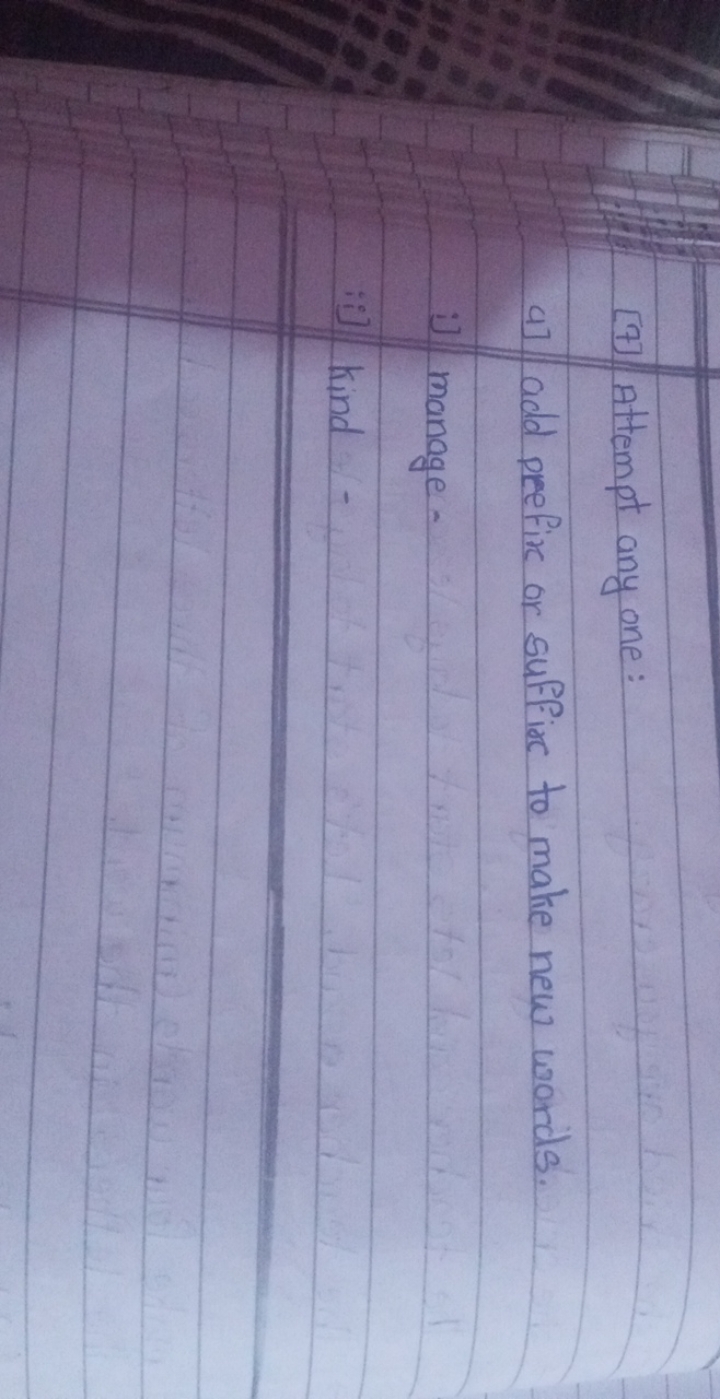 [7] Attempt any one:
a] add prefix or suffix to make new words.
i] manage -
ii] kind -